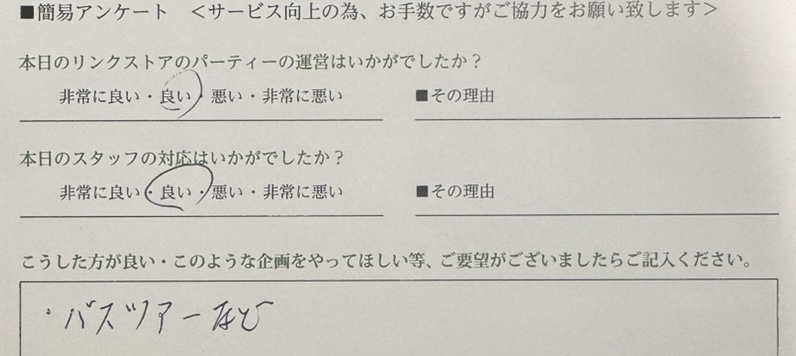 ■簡易アンケート ＜サービス向上の為、お手数ですがご協力をお願い致します＞
本日のリンクストアのパーティーの運営はいかがでしたか？
非常に良い・良い・悪い・非常に悪い ■その理由
本日のスタッフの対応はいかがでしたか？
非常に良い・良い・悪い・非常に悪い ■その理由
こうした方が良い・このような企画をやってほしい等、ご要望がございましたらご記入ください。
・バスツアーなど